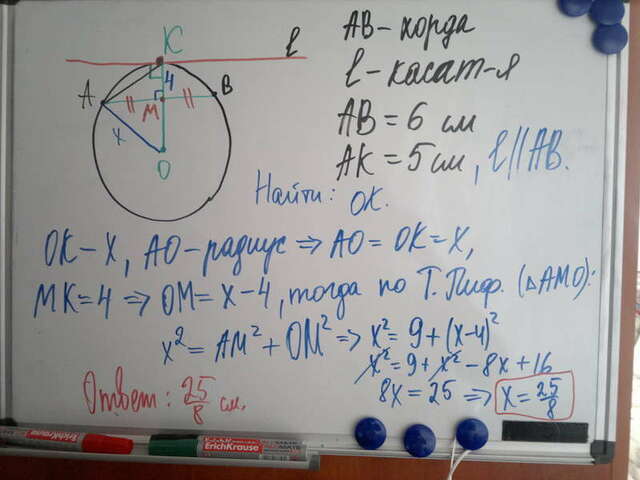 К
l
4
A
B
M
x
O
AB-хорда
l-касат-я
AB = 6 см
AK = 5 см, l||AB.
Найти: OK.
OK-x, AO-радиус ⇒ AO = OK = x,
MK = 4 ⇒ OM = x-4, тогда по Т. Пиф. (△AMO):
x² = AM² + OM² ⇒ x² = 9 + (x-4)²
x² = 9 + x² - 8x + 16
8x = 25 ⇒ x = 25/8
Ответ: 25/8 см.
ErichKrause
ErichKrause